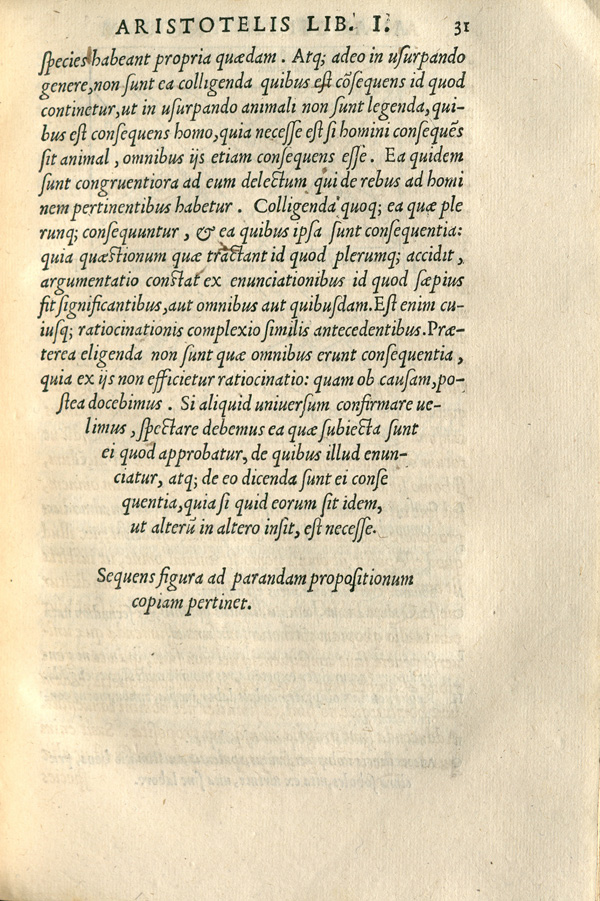 ARISTOTELIS LIB. I. 31
species habeant propria quædam. Atq; adeo in usurpando
genere, non sunt ea colligenda quibus est cõsequens id quod
continetur, ut in usurpando animali non sunt legenda, qui-
bus est consequens homo, quia necesse est si homini consequẽs
sit animal, omnibus ijs etiam consequens esse. Ea quidem
sunt congruentiora ad eum delectum qui de rebus ad homi
nem pertinentibus habetur. Colligenda quoq; ea quæ ple
runq; consequuntur, & ea quibus ipsa sunt consequentia:
quia quæstionum quæ tractant id quod plerumq; accidit,
argumentatio constat ex enunciationibus id quod sæpius
fit significantibus, aut omnibus aut quibusdam. Est enim cu-
iusq; ratiocinationis complexio similis antecedentibus. Præ-
terea eligenda non sunt quæ omnibus erunt consequentia,
quia ex ijs non efficietur ratiocinatio: quam ob causam, po-
stea docebimus. Si aliquid uniuersum confirmare ue-
limus, spectare debemus ea quæ subiecta sunt
ei quod approbatur, de quibus illud enun-
ciatur, atq; de eo dicenda sunt ei conse
quentia, quia si quid eorum sit idem,
ut alterũ in altero insit, est necesse.
Sequens figura ad parandam propositionum
copiam pertinet.